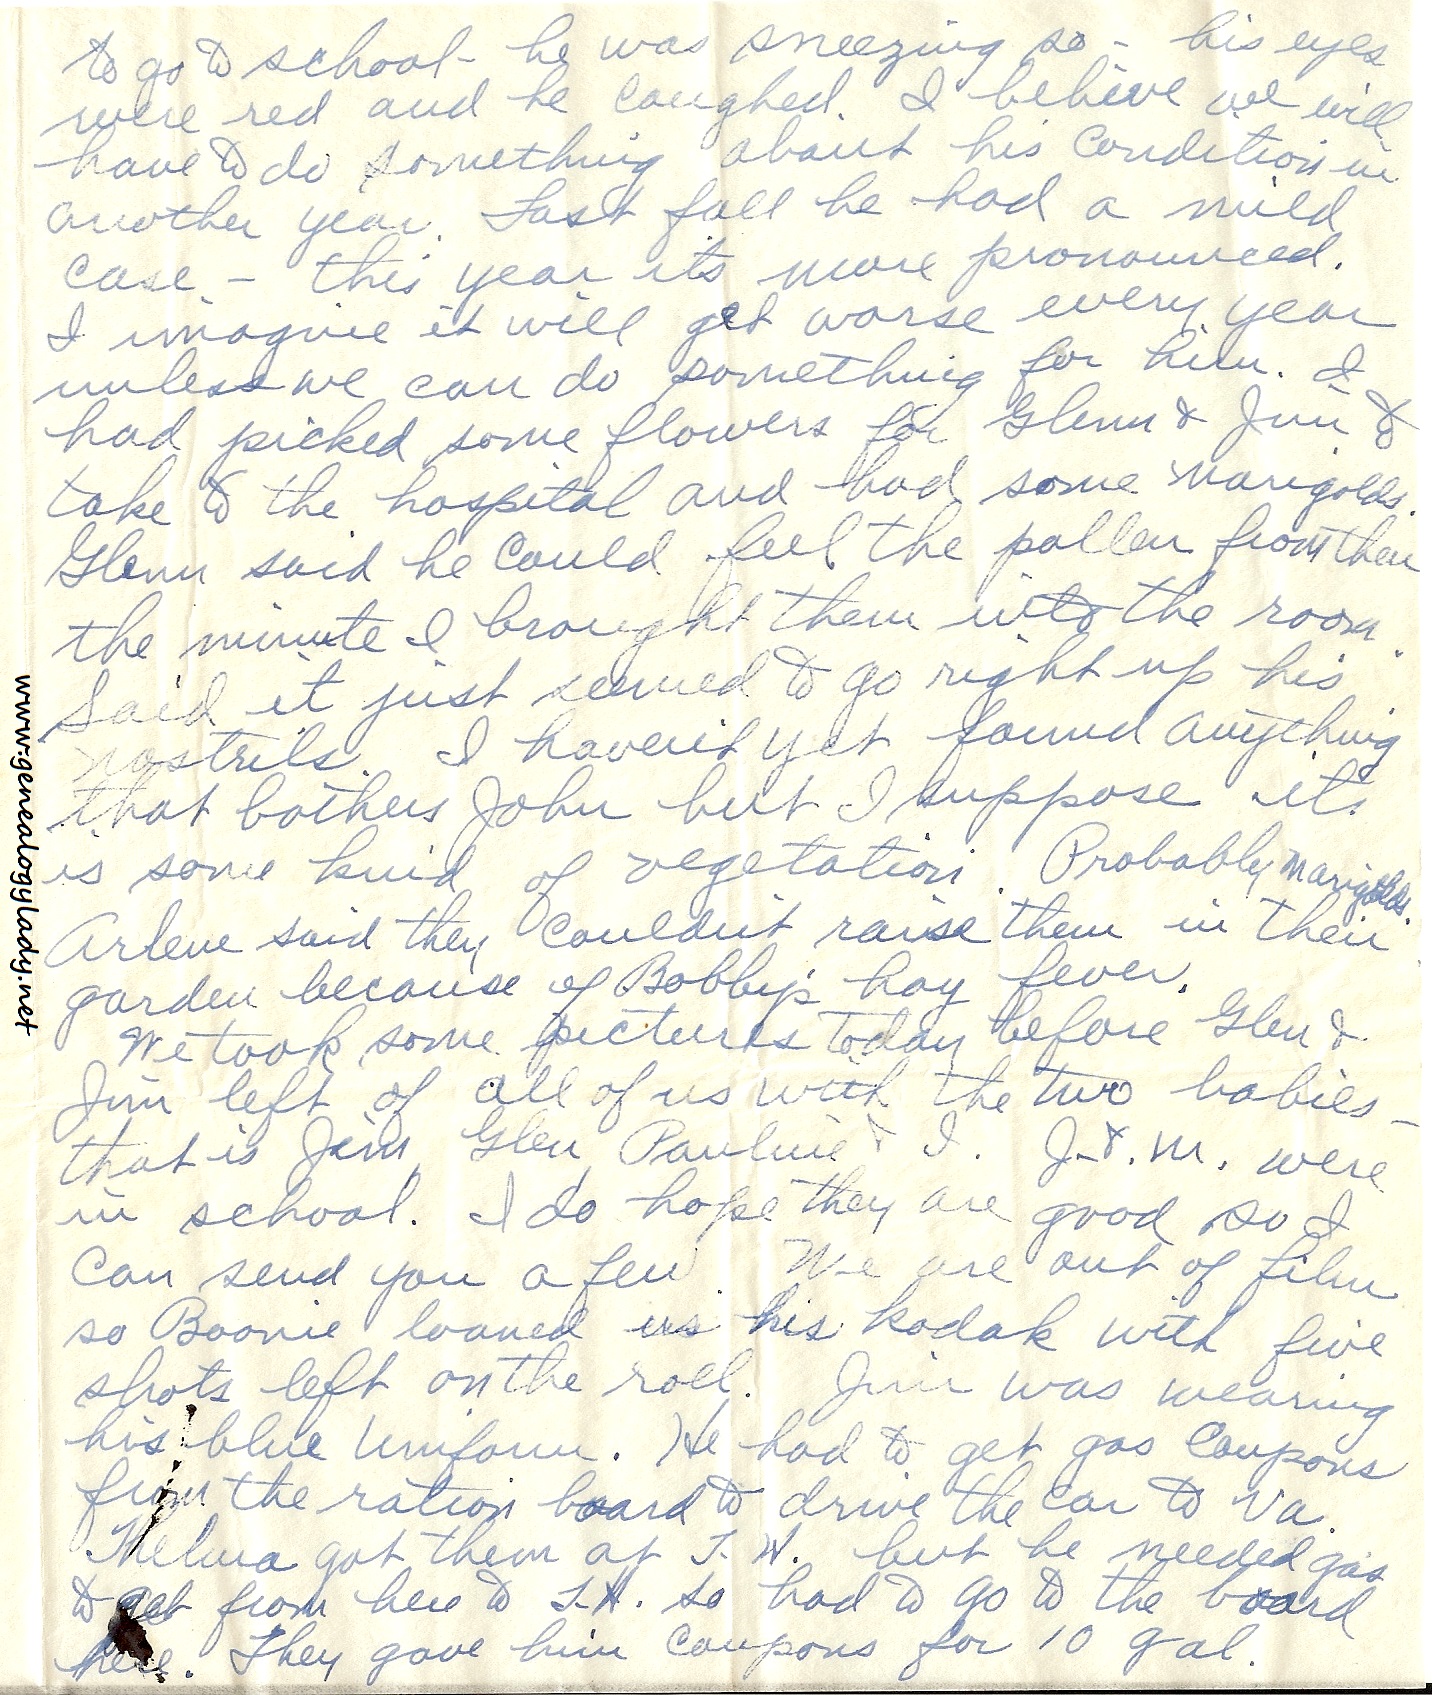 to go to school - he was sneezing so - his eyes
were red and he coughed. I believe we will
have to do something about his condition in
another year. Last fall he had a mild
case. - this year its more pronounced.
I imagine it will get worse every year
unless we can do something for him. I
had picked some flowers for Glenn & Jim to
take to the hospital and had some marigolds.
Glenn said he could feel the pollen from them
the minute I brought them into the room.
Said it just seemed to go right up his
nostrils. I haven't yet found anything
that bothers John but I suppose its
is some kind of vegetation. Probably marigolds.
Arlene said they couldn't raise them in their
garden because of Bobby's hay fever.
We took some pictures today before Glen &
Jim left of all of us with the two babies -
that is Jim, Glen Pauline & I. J. & M. were
in school. I do hope they are good so I
can send you a few. We are out of film
so Boonie loaned us his kodak with five
shots left on the roll. Jim was wearing
his blue uniform. He had to get gas coupons
from the ration board to drive the car to Va.
Thelma got them at T. H. but he needed gas
to get from here to T.H. so had to go to the board
here. They gave him coupons for 10 gal.
www.genealogylady.net